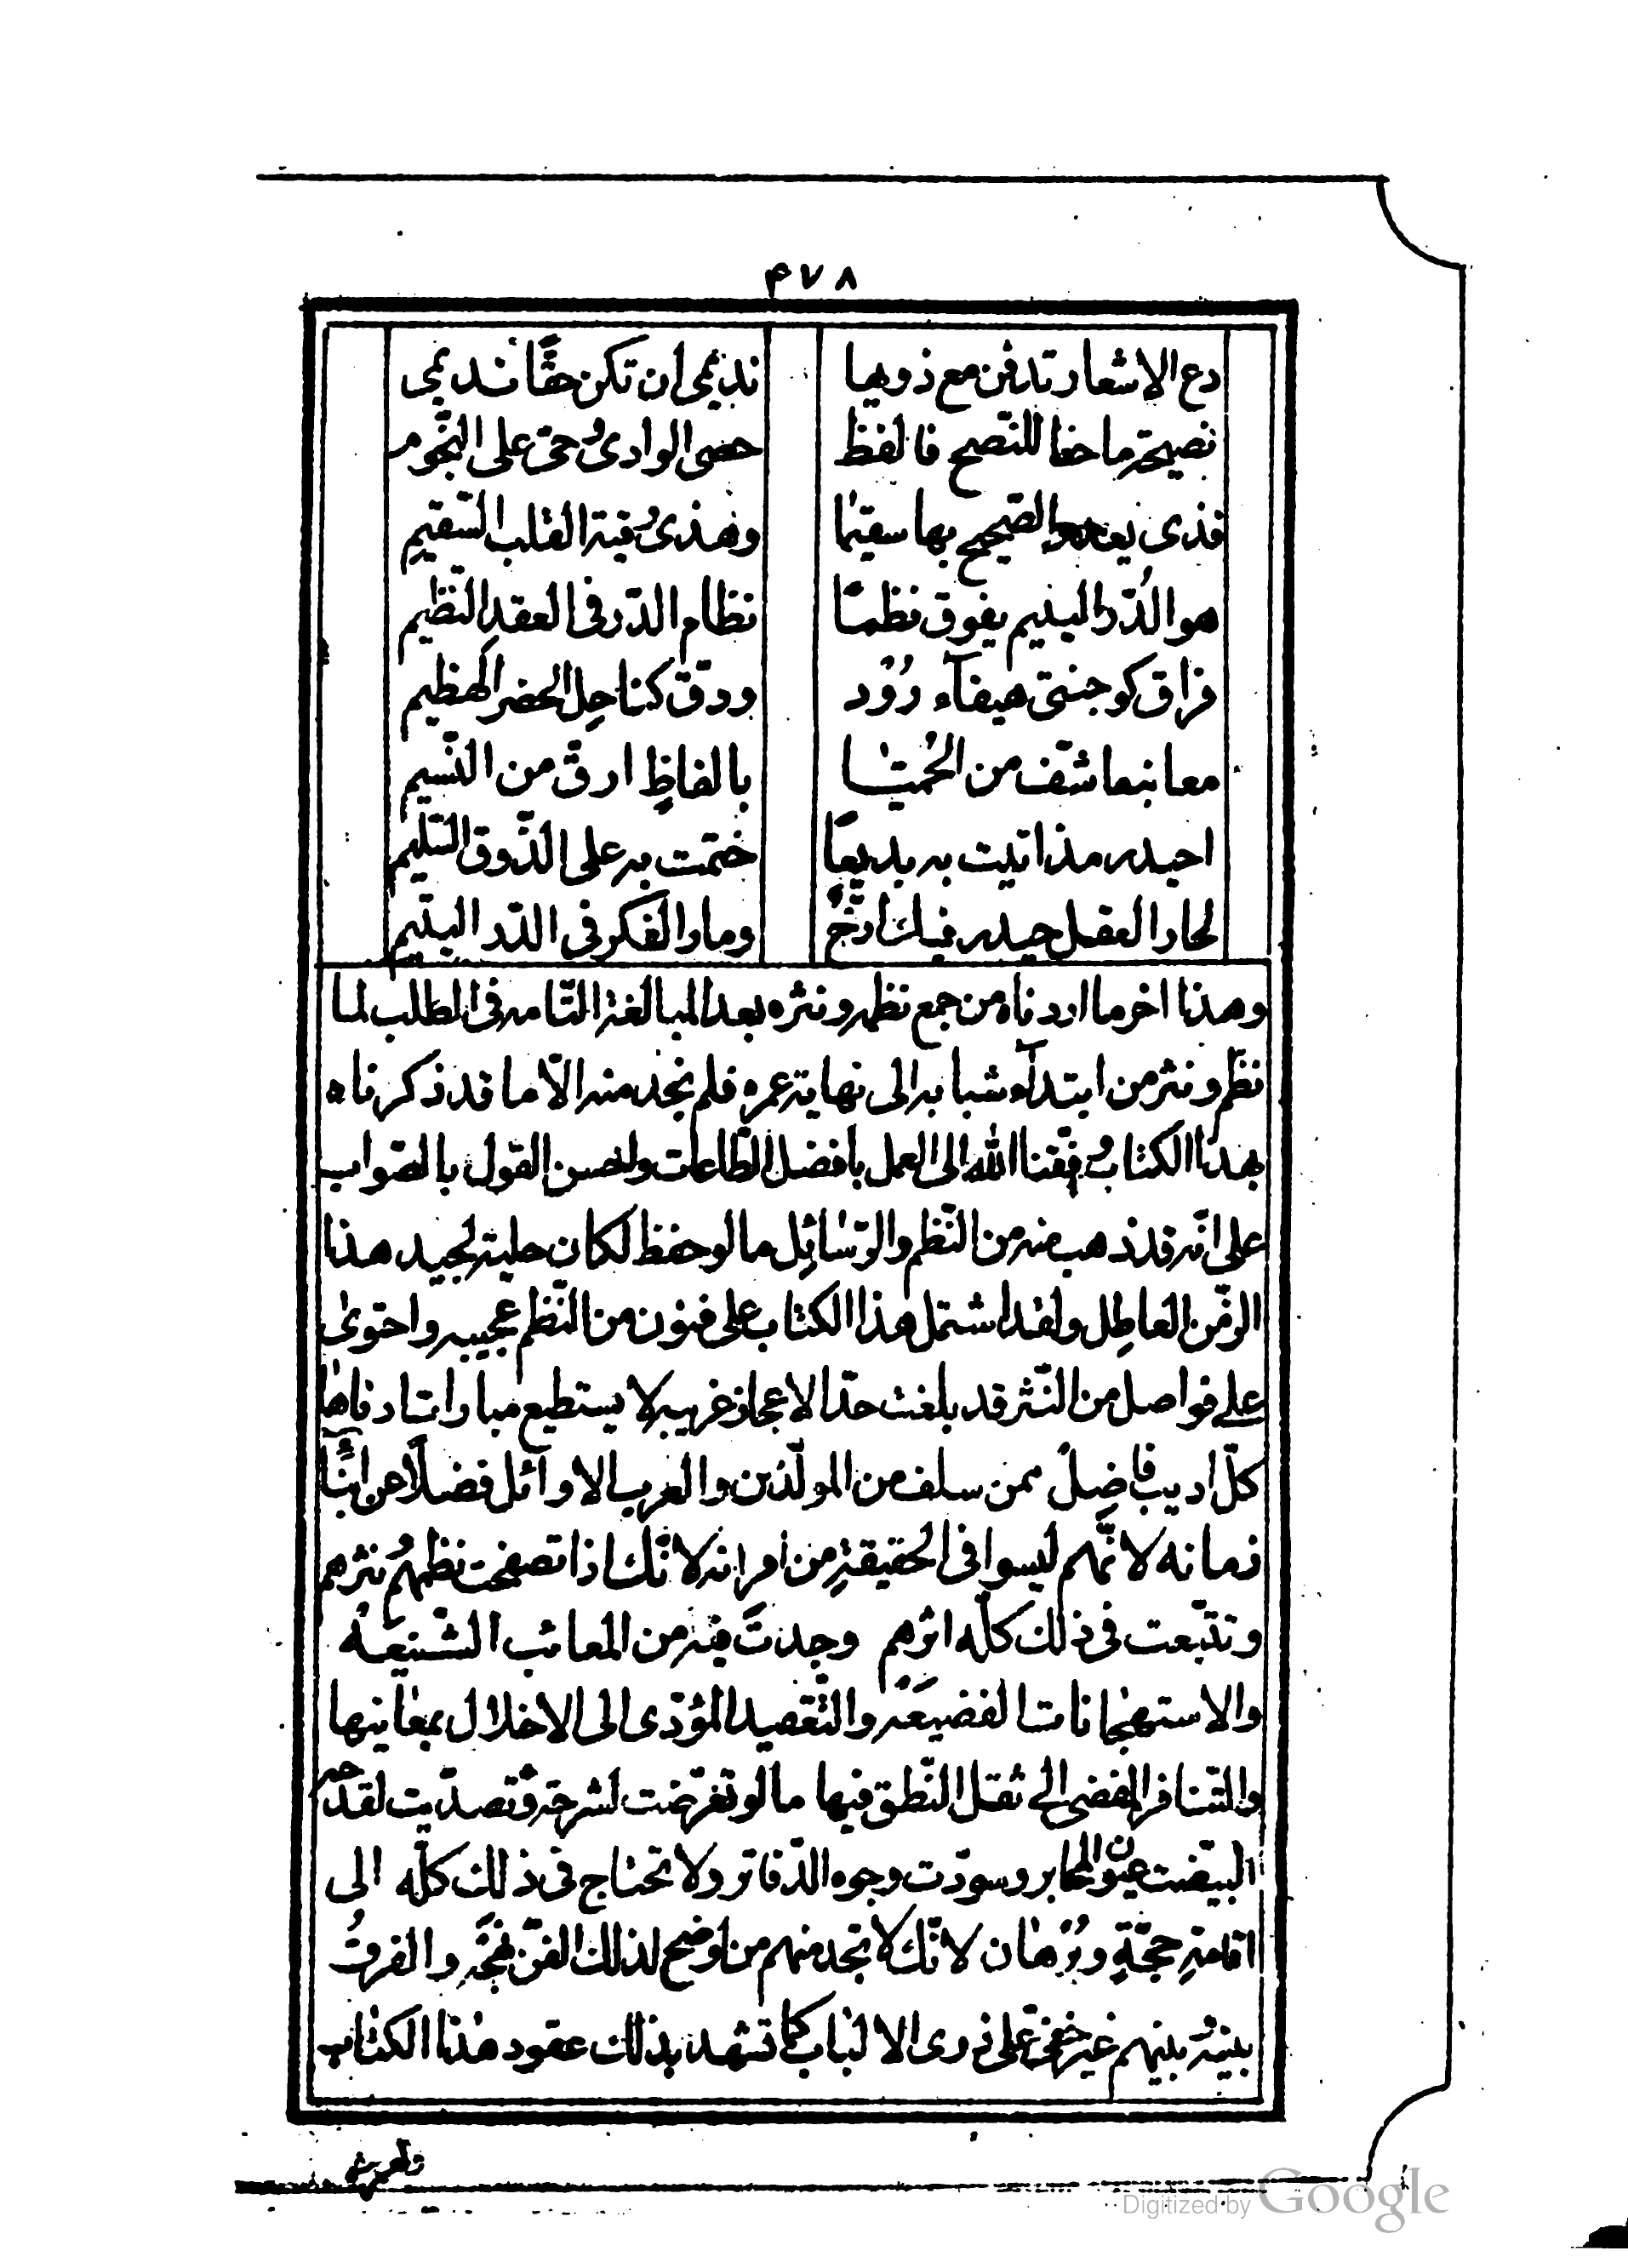 ۴۷۸
دع الاشعار تدفن مع ذويها نديمي ان تكن حقًّا نديمي
نصيحة ما حفا للنصح فالفظ حصى الوادى وحقّ على النّجوم
فذى يعدو الصّحيح بها سقيمًا وهذى رقية القلب السّقيم
هو الدُّرّ اليتيم يفوق نظمًا نظام الدّر في العقد النّظيم
فراق كوجنتى هيفآء رُوُد ودقّ كناحل الخصر الهظيم
معانيها شقّف من الحُميّا بالفاظٍ ارقّ من النّسيم
احيدر مذ اتيت به بديعًا ختمت به على الذّوق السّليم
لحار العقل حيدر فيك وما والفكر في الدّر اليتيم
وهذا اخر ما اردناه من جمع نظمه ونثره بعد المبالغة التّامه في الطلب لما
نظم ونثر من ابتدآء شبابه الى نهاية عمره فلم نجد منه الّا ما قد ذكرناه
بهذا الكتاب وفّقنا اللّه الى العمل بافضل الطّاعات ولحسن القول بالصّواب
على انّه قد ذهب منه من النّظم والرّسائل ما لو حفظ لكان حلية لجيد هذا
الزّمن العاطل ولقد اشتمل هذا الكتاب على فنون من النّظم عجيبه واحتوىٰ
على فواصل من النّثر قد بلغت حدّ الاعجاز غريبه لا يستطيع مباراتا دناها
كلّ اديب فاضِل ممن سلف من المولّدين والعرب الاوآئل فضلًا عن ابنآء
زمانه لانّهم ليسوا في الحقيقةِ من اقرانه لانّك اذا تصفحت نظمهُم ونثرهم
وتتبّعت في ذلك كلّه اثرهم وجدتَ فيه من المعائب الشّنيعه
والاستهجانات الفضيعَه والتّعقيد المؤدّى الى الاخلال بمعانيها
والتّنافر المفضى الى ثقل النّطق فيها ما لو تعرّضت لشرحه وتصدّيت لقدحه
البيضّت عيون المحابر وسودّت وجوه الدّفاتر ولا تحتاج في ذلك كلّه الى
اقامةِ حجّةٍ وبُرهان لانّك لا تجد منهم من اوضح لذلك الفنّ نهجَه والفرقُ
بينه بينهم غير خفيّ على ذوى الالباب كما تشهد بذلك عقود هذا الكتاب